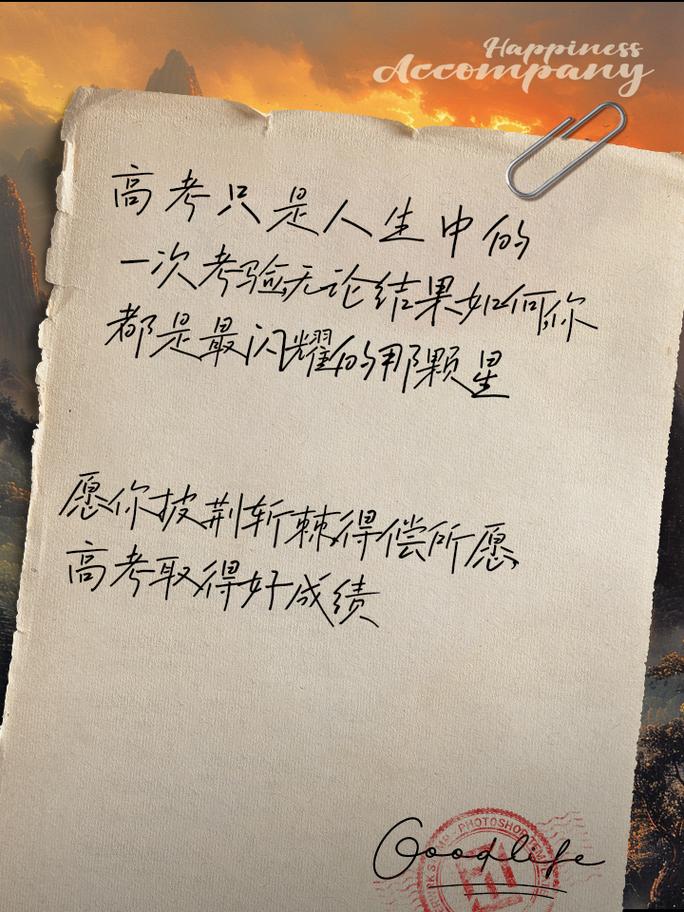 Happiness
Accompany
高考只是人生中的
一次考验无论结果如何你
都是最闪耀的那颗星
愿你披荆斩棘得偿所愿
高考取得好成绩
Goodlife
PHOTOSHOP